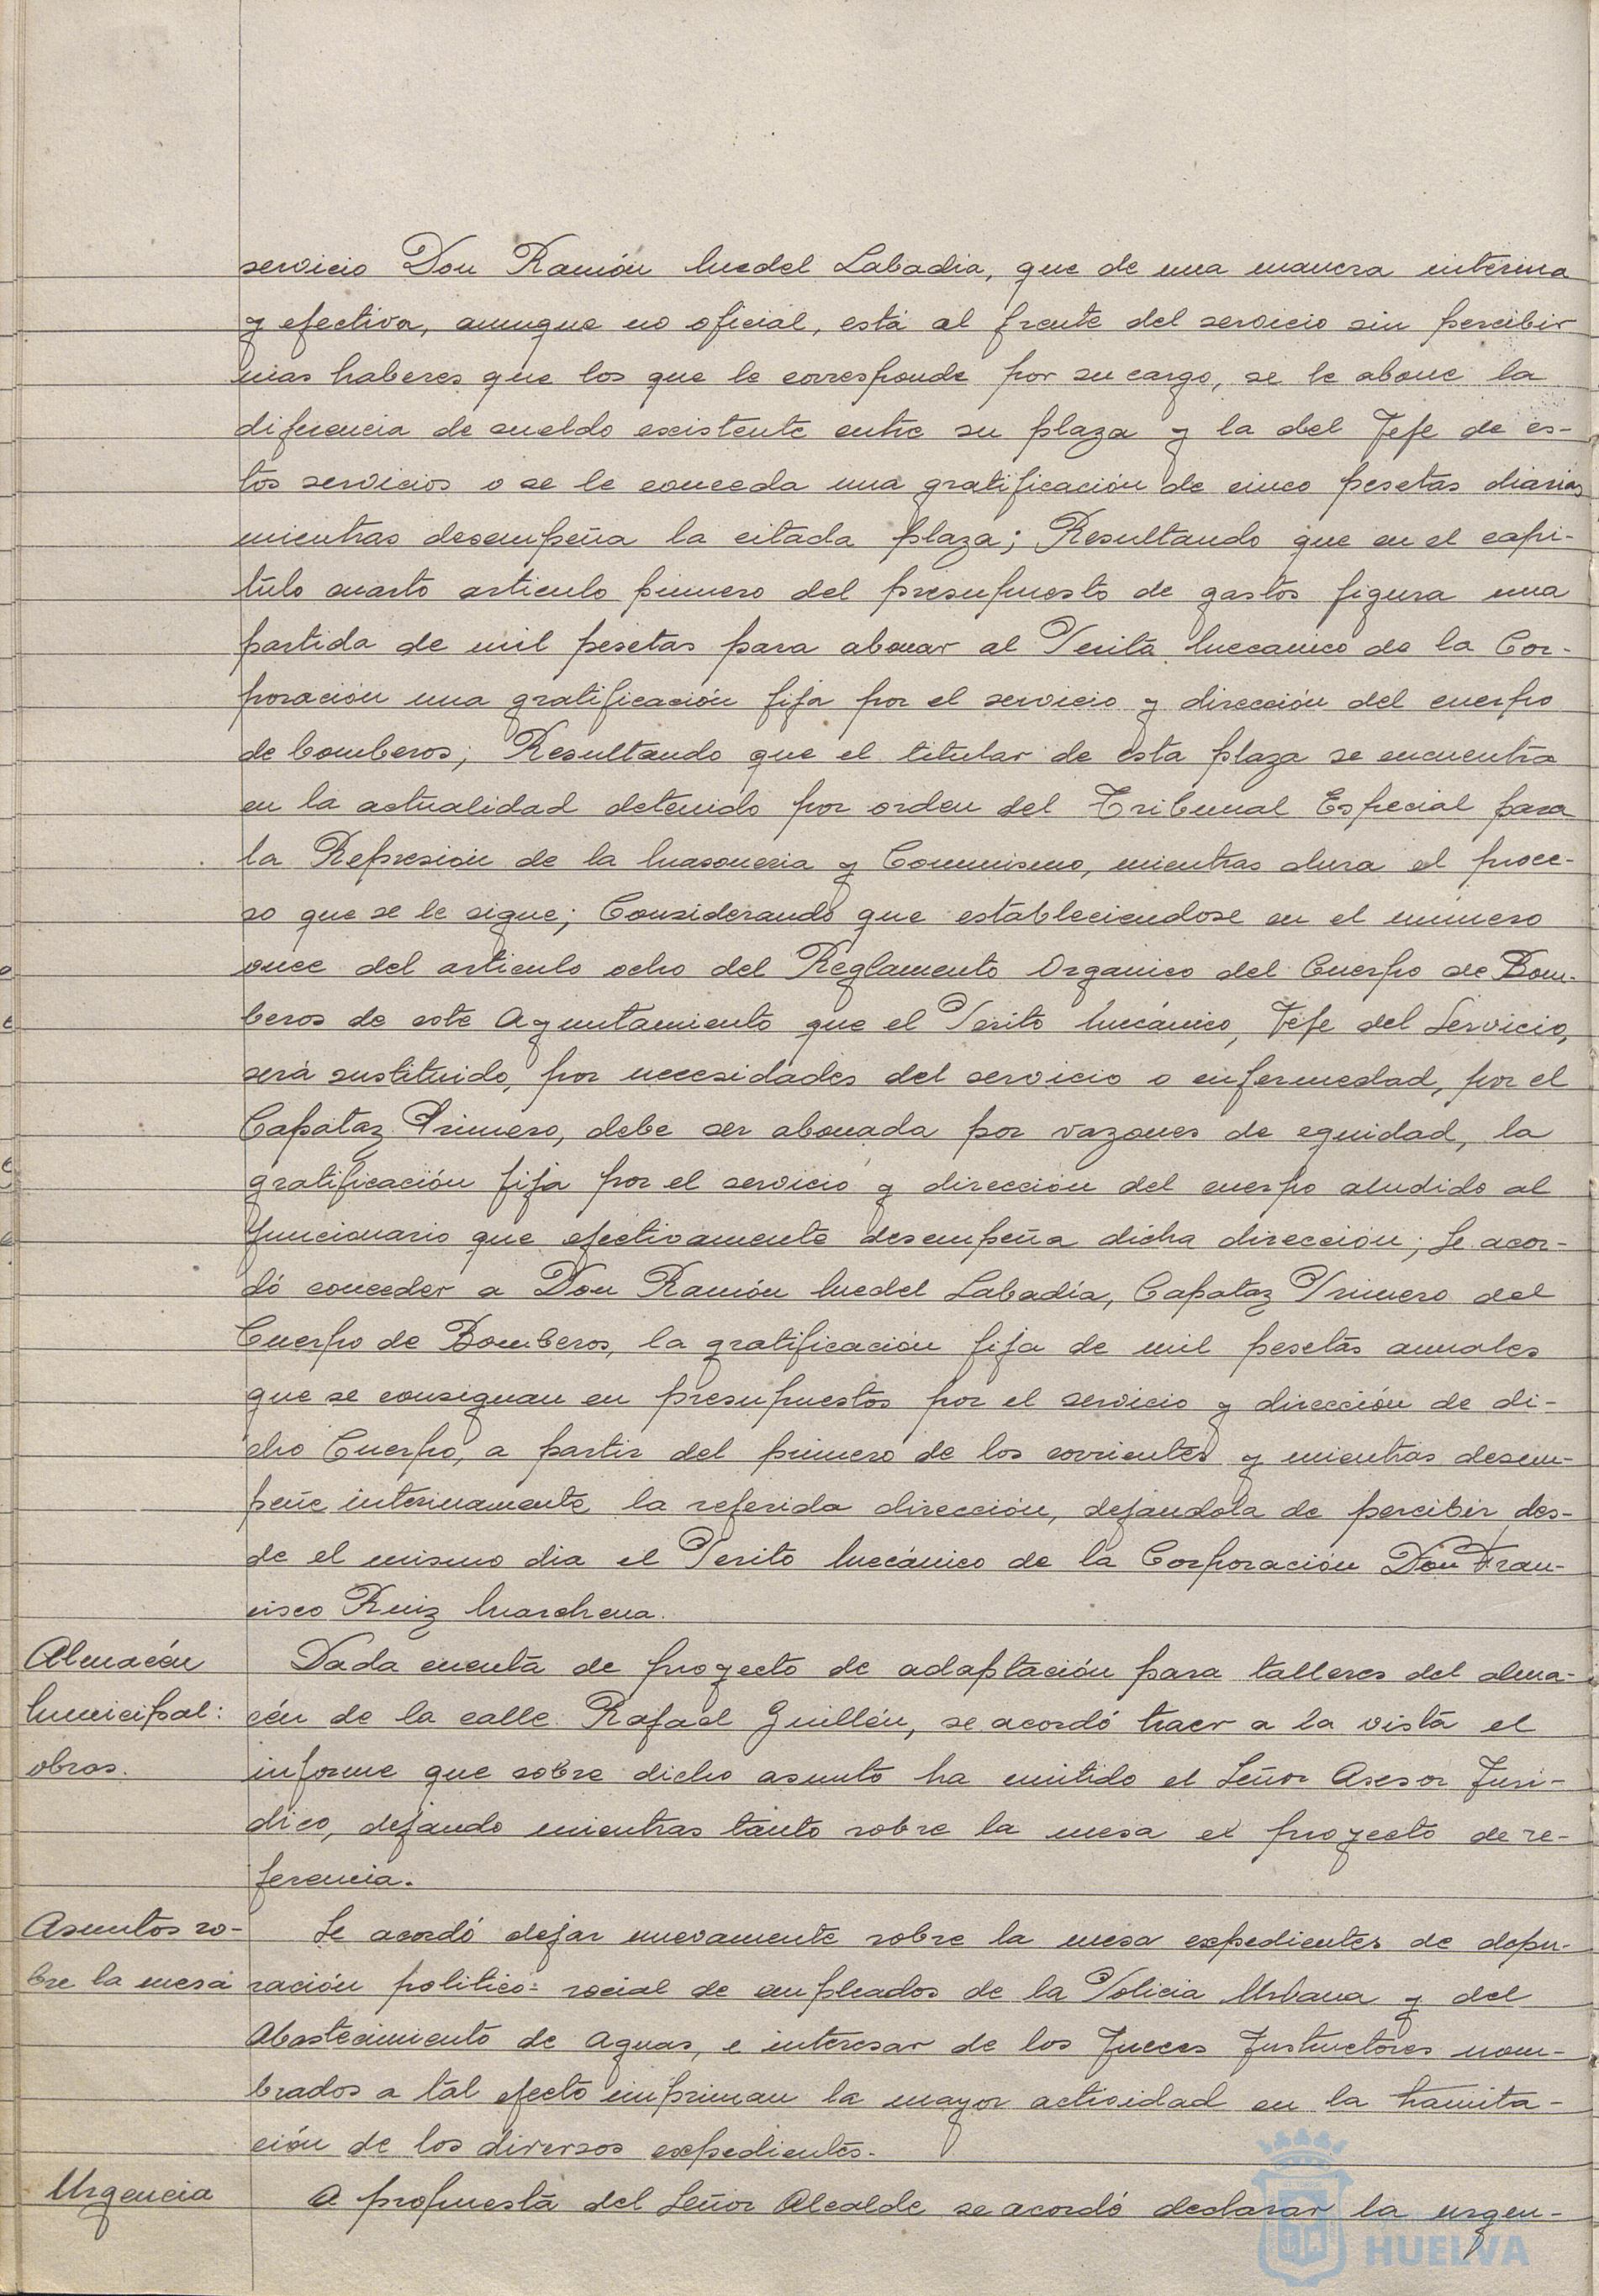 servicio Don Ramón Medel Labadia, que de una manera interina
y efectiva, aunque no oficial, está al frente del servicio sin percibir
mas haberes que los que le corresponde por su cargo, se le abone la
diferencia de sueldo existente entre su plaza y la del Jefe de es-
tos servicios o se le conceda una gratificación de cinco pesetas diarias
mientras desempeña la citada plaza; Resultando que en el capi-
tulo cuarto articulo primero del presupuesto de gastos figura una
partida de mil pesetas para abonar al Perito Mecanico de la Cor-
poración una gratificación fija por el servicio y dirección del cuerpo
de bomberos; Resultando que el titular de esta plaza se encuentra
en la actualidad detenido por orden del Tribunal Especial para
la Represión de la Masoneria y Comunismo, mientras dura el proce-
so que se le sigue; Considerando que estableciendose en el número
once del articulo ocho del Reglamento Organico del Cuerpo de Bom-
beros de este Ayuntamiento que el Perito Mecánico, Jefe del Servicio,
será sustituido, por necesidades del servicio o enfermedad, por el
Capataz Primero, debe ser abonada por razones de equidad, la
gratificación fija por el servicio y dirección del cuerpo aludido al
funcionario que efectivamente desempeña dicha dirección; Se acor-
dó conceder a Don Ramón Medel Labadía, Capataz Primero del
Cuerpo de Bomberos, la gratificación fija de mil pesetas anuales
que se consignan en presupuestos por el servicio y dirección de di-
cho Cuerpo, a partir del primero de los corrientes y mientras desem-
peñe interinamente la referida dirección, dejandola de percibir des-
de el mismo dia el Perito Mecánico de la Corporación Don Fran-
cisco Ruiz Marchena.
Almacén
Municipal:
obras.
Dada cuenta de proyecto de adaptación para talleres del alma-
cén de la calle Rafael Guillén, se acordó traer a la vista el
informe que sobre dicho asunto ha emitido el Señor Asesor Juri-
dico, dejando mientras tanto sobre la mesa el proyecto de re-
ferencia.
Asuntos so-
bre la mesa
Se acordó dejar nuevamente sobre la mesa expedientes de depu-
ración politico=social de empleados de la Policia Urbana y del
Abastecimiento de Aguas, e interesar de los Jueces Instructores nom-
brados a tal efecto impriman la mayor actividad en la tramita-
ción de los diversos expedientes.
Urgencia
A propuesta del Señor Alcalde se acordó declarar la urgen-
HUELVA